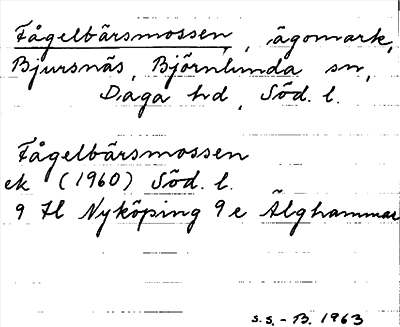 Fågelbärsmossen, ägomark,
Bjursnäs, Björnlunda sn,
Daga hd, Söd. l.
Fågelbärsmossen
ek (1960) Söd. l.
9 H Nyköping 9 e Älghammar
S.S. - B. 1963